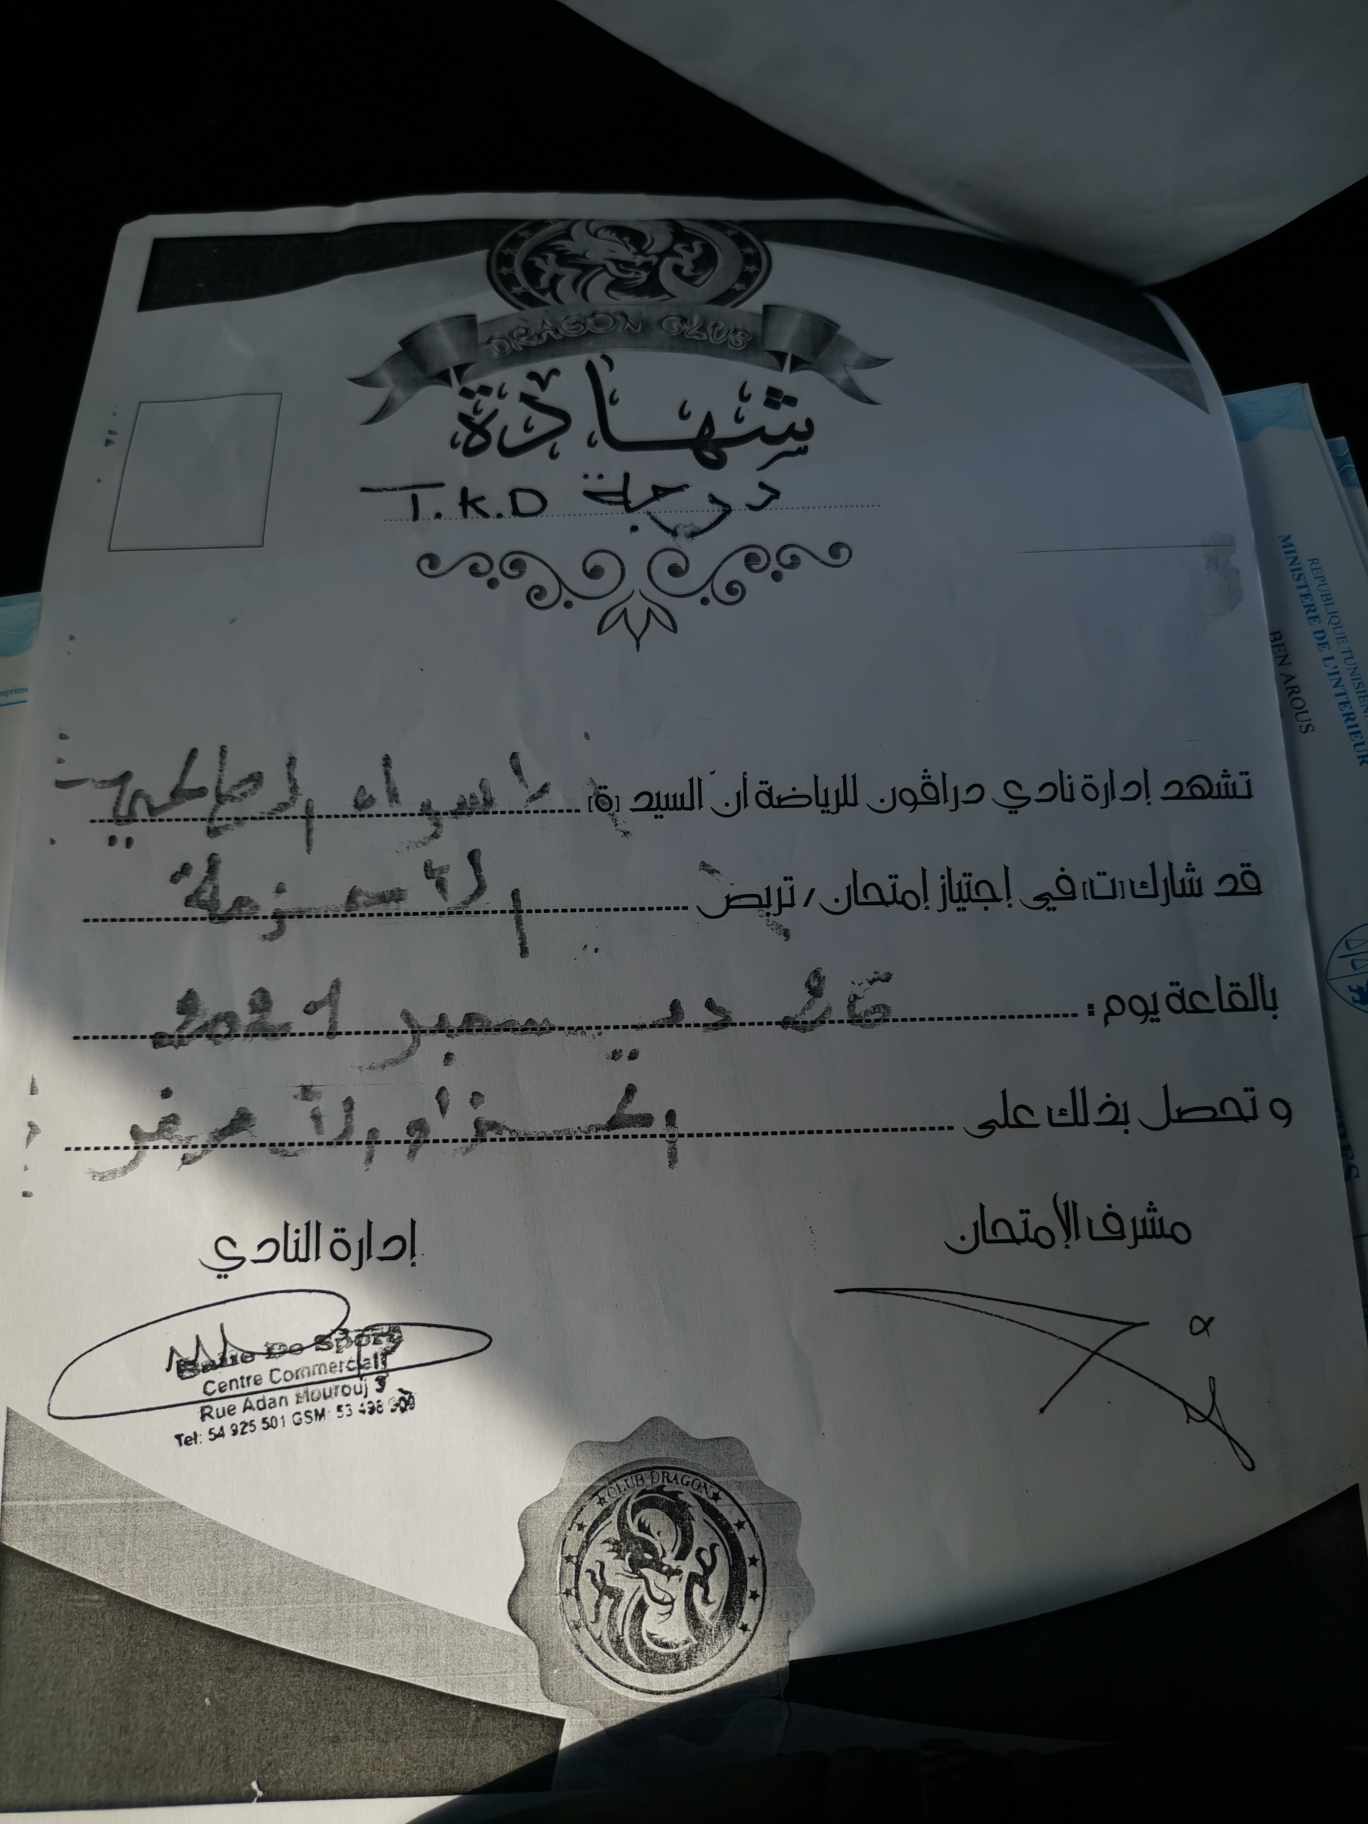 DRAGON CLUB
شهادة
درجة T.K.D
REPUBLIQUE TUNISIEN
MINISTERE DE L'INTERIEUR
BEN AROUS
تشهد إدارة نادي دراڨون للرياضة أن السيد (ة) اسراء الصالحي
قد شارك (ت) في إجتياز إمتحان / تربص الأحزمة
بالقاعة يوم : 26 ديسمبر 2021
و تحصل بذلك على الحزام الأصفر
مشرف الإمتحان
إدارة النادي
Salle De Sport
Centre Commercial
Rue Adan Mourouj 3
Tel: 54 925 501 GSM: 53 498
CLUB DRAGON